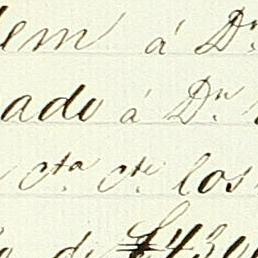 em á Dn
ado á Dn
cta cte los
de $430